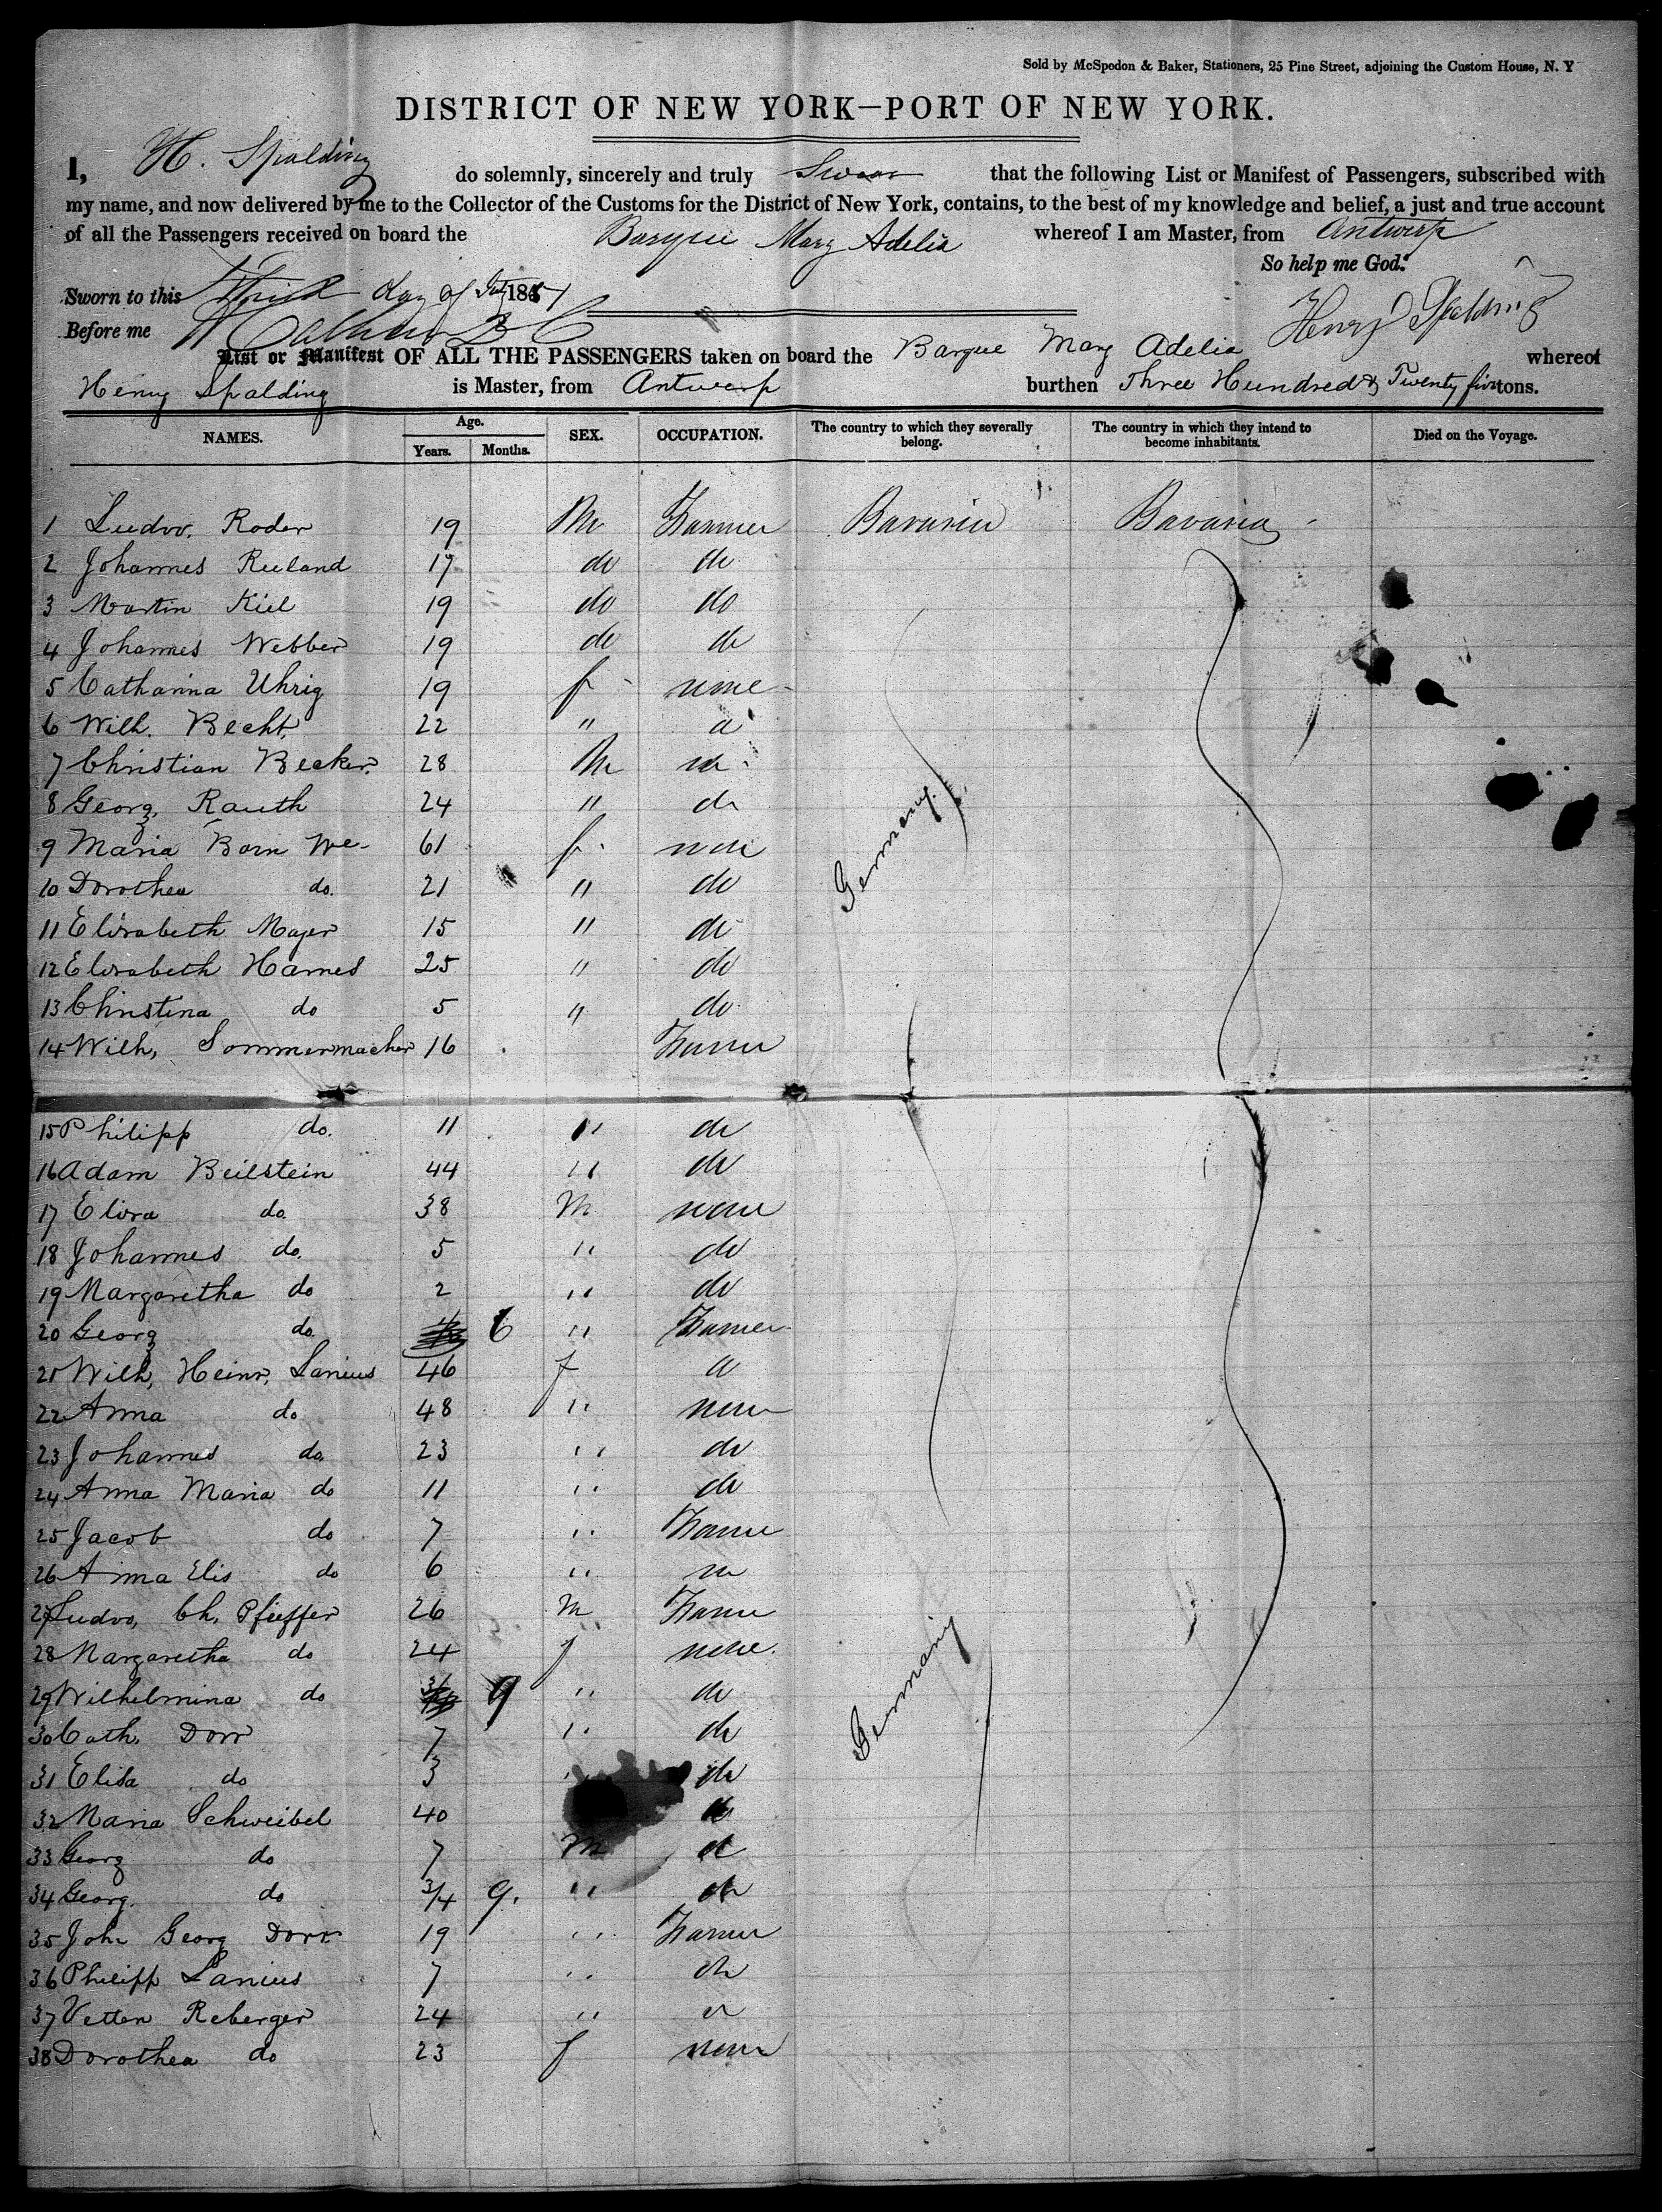 Sold by McSpedon & Baker, Stationers, 25 Pine Street, adjoining the Custom House, N. Y
DISTRICT OF NEW YORK—PORT OF NEW YORK.
I, H. Spalding do solemnly, sincerely and truly Swear that the following List or Manifest of Passengers, subscribed with
my name, and now delivered by me to the Collector of the Customs for the District of New York, contains, to the best of my knowledge and belief, a just and true account
of all the Passengers received on board the Barque Mary Adelia whereof I am Master, from Antwerp
So help me God.
Sworn to this Third day of July 185
Before me Henry Spalding
List or Manifest OF ALL THE PASSENGERS taken on board the Barque Mary Adelia whereof
Henry Spalding is Master, from Antwerp burthen Three Hundred & Twenty five tons.
NAMES. Age. Years. Months. SEX. OCCUPATION. The country to which they severally belong. The country in which they intend to become inhabitants. Died on the Voyage.
1 Ludw. Roder 19 M Farmer Bavaria Bavaria
2 Johannes Ruland 17 do do
3 Martin Kiel 19 do do
4 Johannes Webber 19 do do
5 Catharina Uhrig 19 f none
6 Wilh. Becht 22 "
7 Christian Becker 28 M
8 Georg Rauth 24 " do
9 Maria Born We 61 f none
10 Dorothea do. 21 " do
11 Elisabeth Majer 15 " do
12 Elisabeth Harned 25 " do
13 Christina do 5 " do
14 Wilh, Sommermacher 16 Farmer
Germany
15 Philipp do. 11 " do
16 Adam Beilstein 44 " do
17 Elisa do 38 M none
18 Johannes do. 5 " do
19 Margaretha do 2 " do
20 Georg do 6 " Farmer
21 Wilh, Heinr, Lanius 46 f
22 Anna do 48 " none
23 Johannes do 23 " do
24 Anna Maria do 11 " do
25 Jacob do 7 " Farmer
26 Anna Elis do 6 "
27 Ludw, Ch, Pfieffer 26 M Farmer
28 Margaretha do 24 f none.
29 Wilhelmina do 9 " do
30 Cath. Dorr 7 " do
31 Elisa do 3 " do
32 Maria Schweibel 40
33 Georg do 7 M do
34 Georg. do 3/4 9. " do
35 Joh Georg Dorr 19 " Farmer
36 Philipp Lanius 7 " do
37 Vetten Reberger 24 "
38 Dorothea do 23 f none
Germany